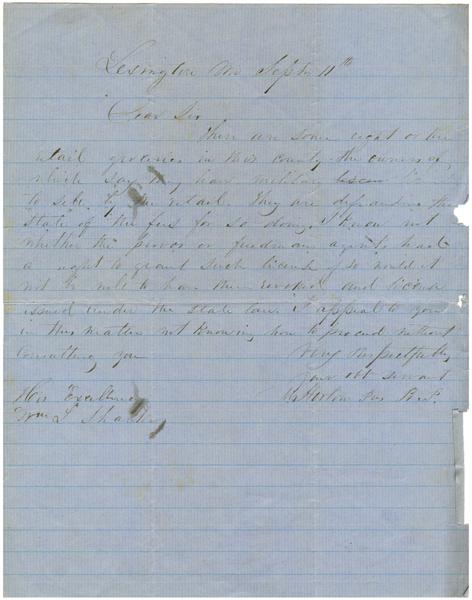 Lexington Mi Septr 11th
Dear Sir
There are some eight or ten
retail groceries in this county the owners of
which say they have military
to sell by the retail. They are defrauding the
State of the fees for so doing. I know not
whether the provos or freedmen agents had
a right to grant such license if so would it
not be well to have them revoked and license
issued under the state law. I appeal to you
in this matter not knowing how to proceed without
consulting you
Very Respectfully
your obt servant
His Excellency
Wm L. Sharkey
Horton